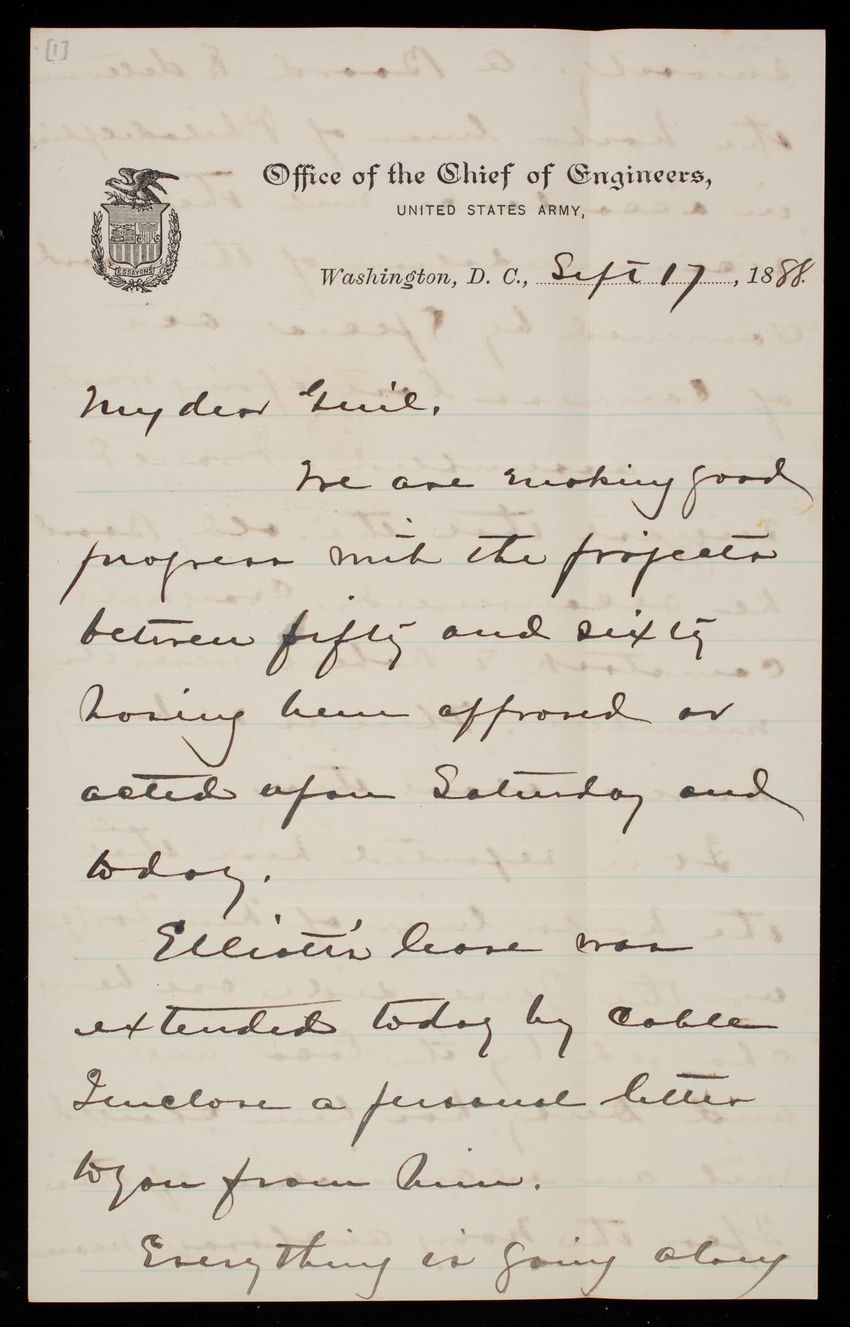 [1]
Office of the Chief of Engineers,
UNITED STATES ARMY,
ESSAYONS
Washington, D. C., Sept 17, 1888.
My dear Gen'l,
We are making good
progress with the projects
between fifty and sixty
having been approved or
acted upon Saturday and
today.
Elliott's leave was
extended today by cable
I enclose a personal letter
to you from him.
Everything is going along